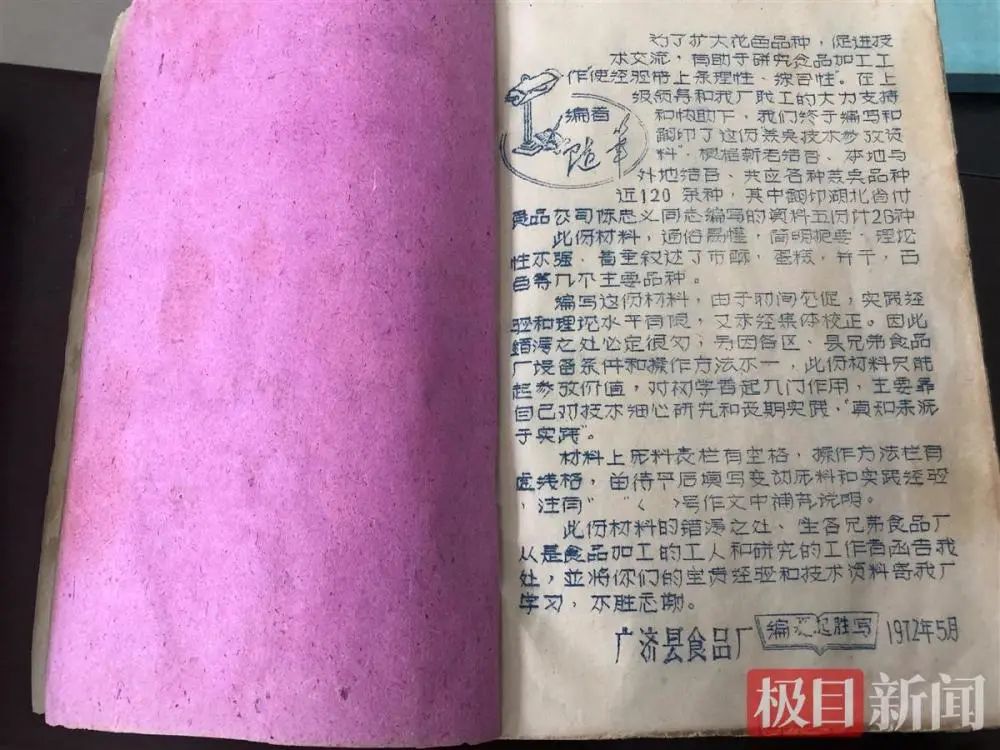 为了扩大花色品种，促进技
术交流，有助于研究食品加工工
作"使经验带上条理性、综合性"。在上
级领导和我厂职工的大力支持
和协助下，我们终于编写和
翻印了这份"蒸臭技术参放资
料"，根据新老结合、本地与
外地结合、共应各种蒸臭品种
近120余种，其中翻印湖北省付
食品公司陈忠义同志编写的资料五份计26种
此份材料，通俗易懂，简明扼要，理论
性不强、着重叙述了市酥，蛋糕，并干，面
包等几个主要品种。
编写这份材料，由于时间仓促，实践经
验和理论水平有限，又未经集体校正。因此
错漏之处必定很多；另因各区、县兄弟食品
厂设备条件和操作方法不一，此份材料只能
起参放价值，对初学者起入门作用，主要靠
自己对技术细心研究和长期实践，"真知来源
于实践"。
材料上原料表栏有空格，操作方法栏有
虚线格，留待平后填写变动原料和实践经验
，注有"　"（　）号作文中补充说明。
此份材料的错漏之处、生各兄弟食品厂
从是食品加工的工人和研究的工作者函告我
处，並将你们的宝贵经验和技术资料寄我厂
学习，不胜感激。
编者
随笔
广济县食品厂 编 胜写 1972年5月
极目新闻